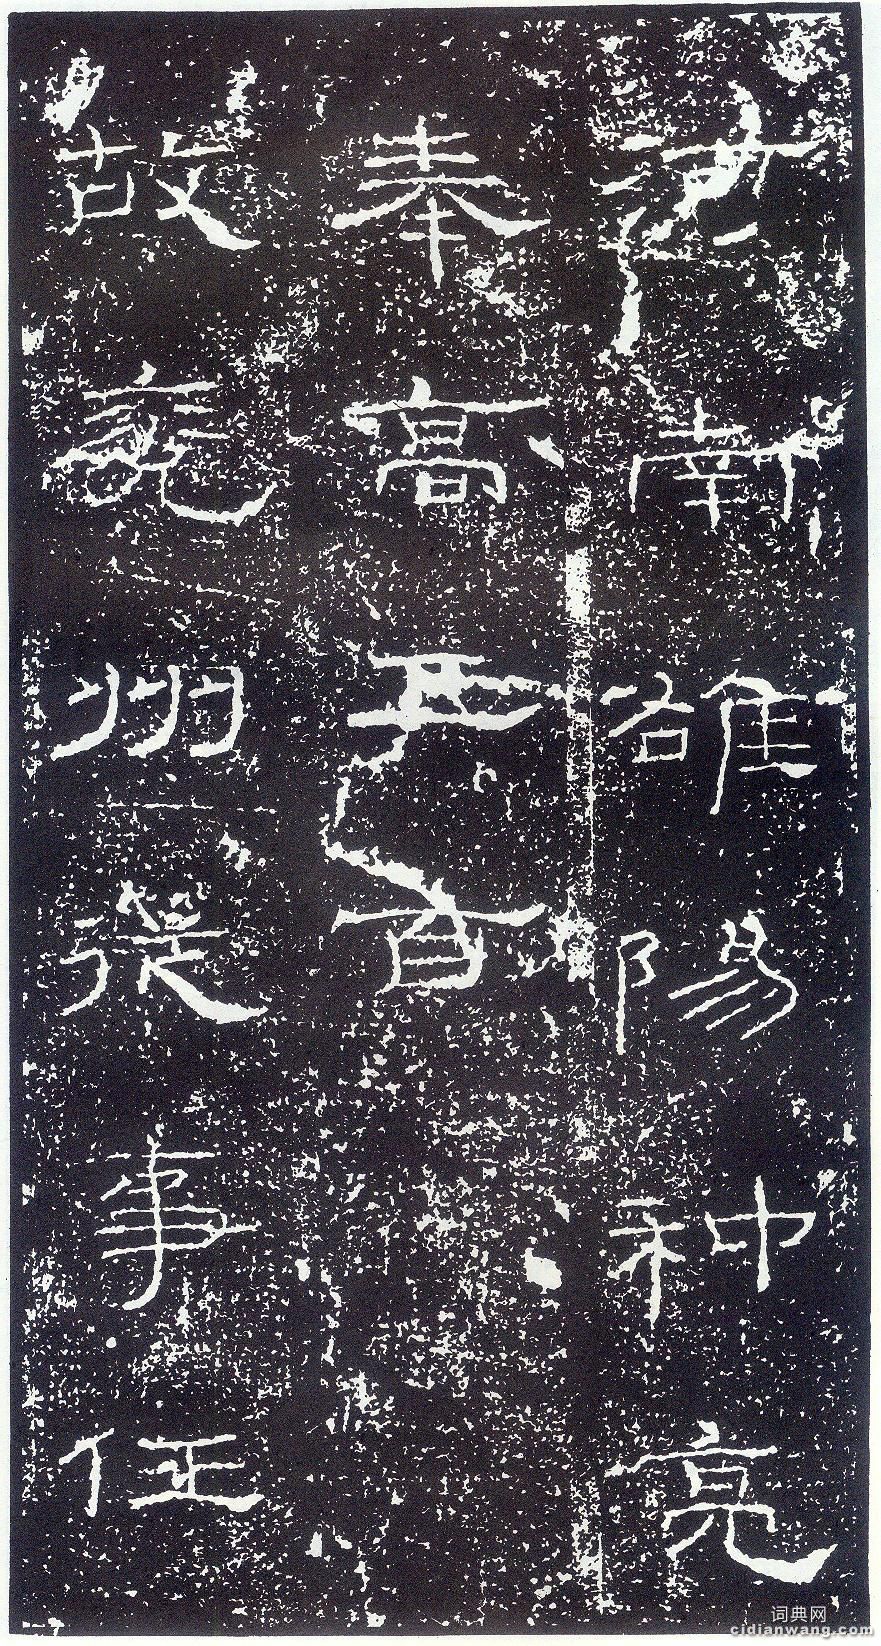 河南雒陽种亮
奉高五百
故兗州從事任
词典网
cidianwang.com